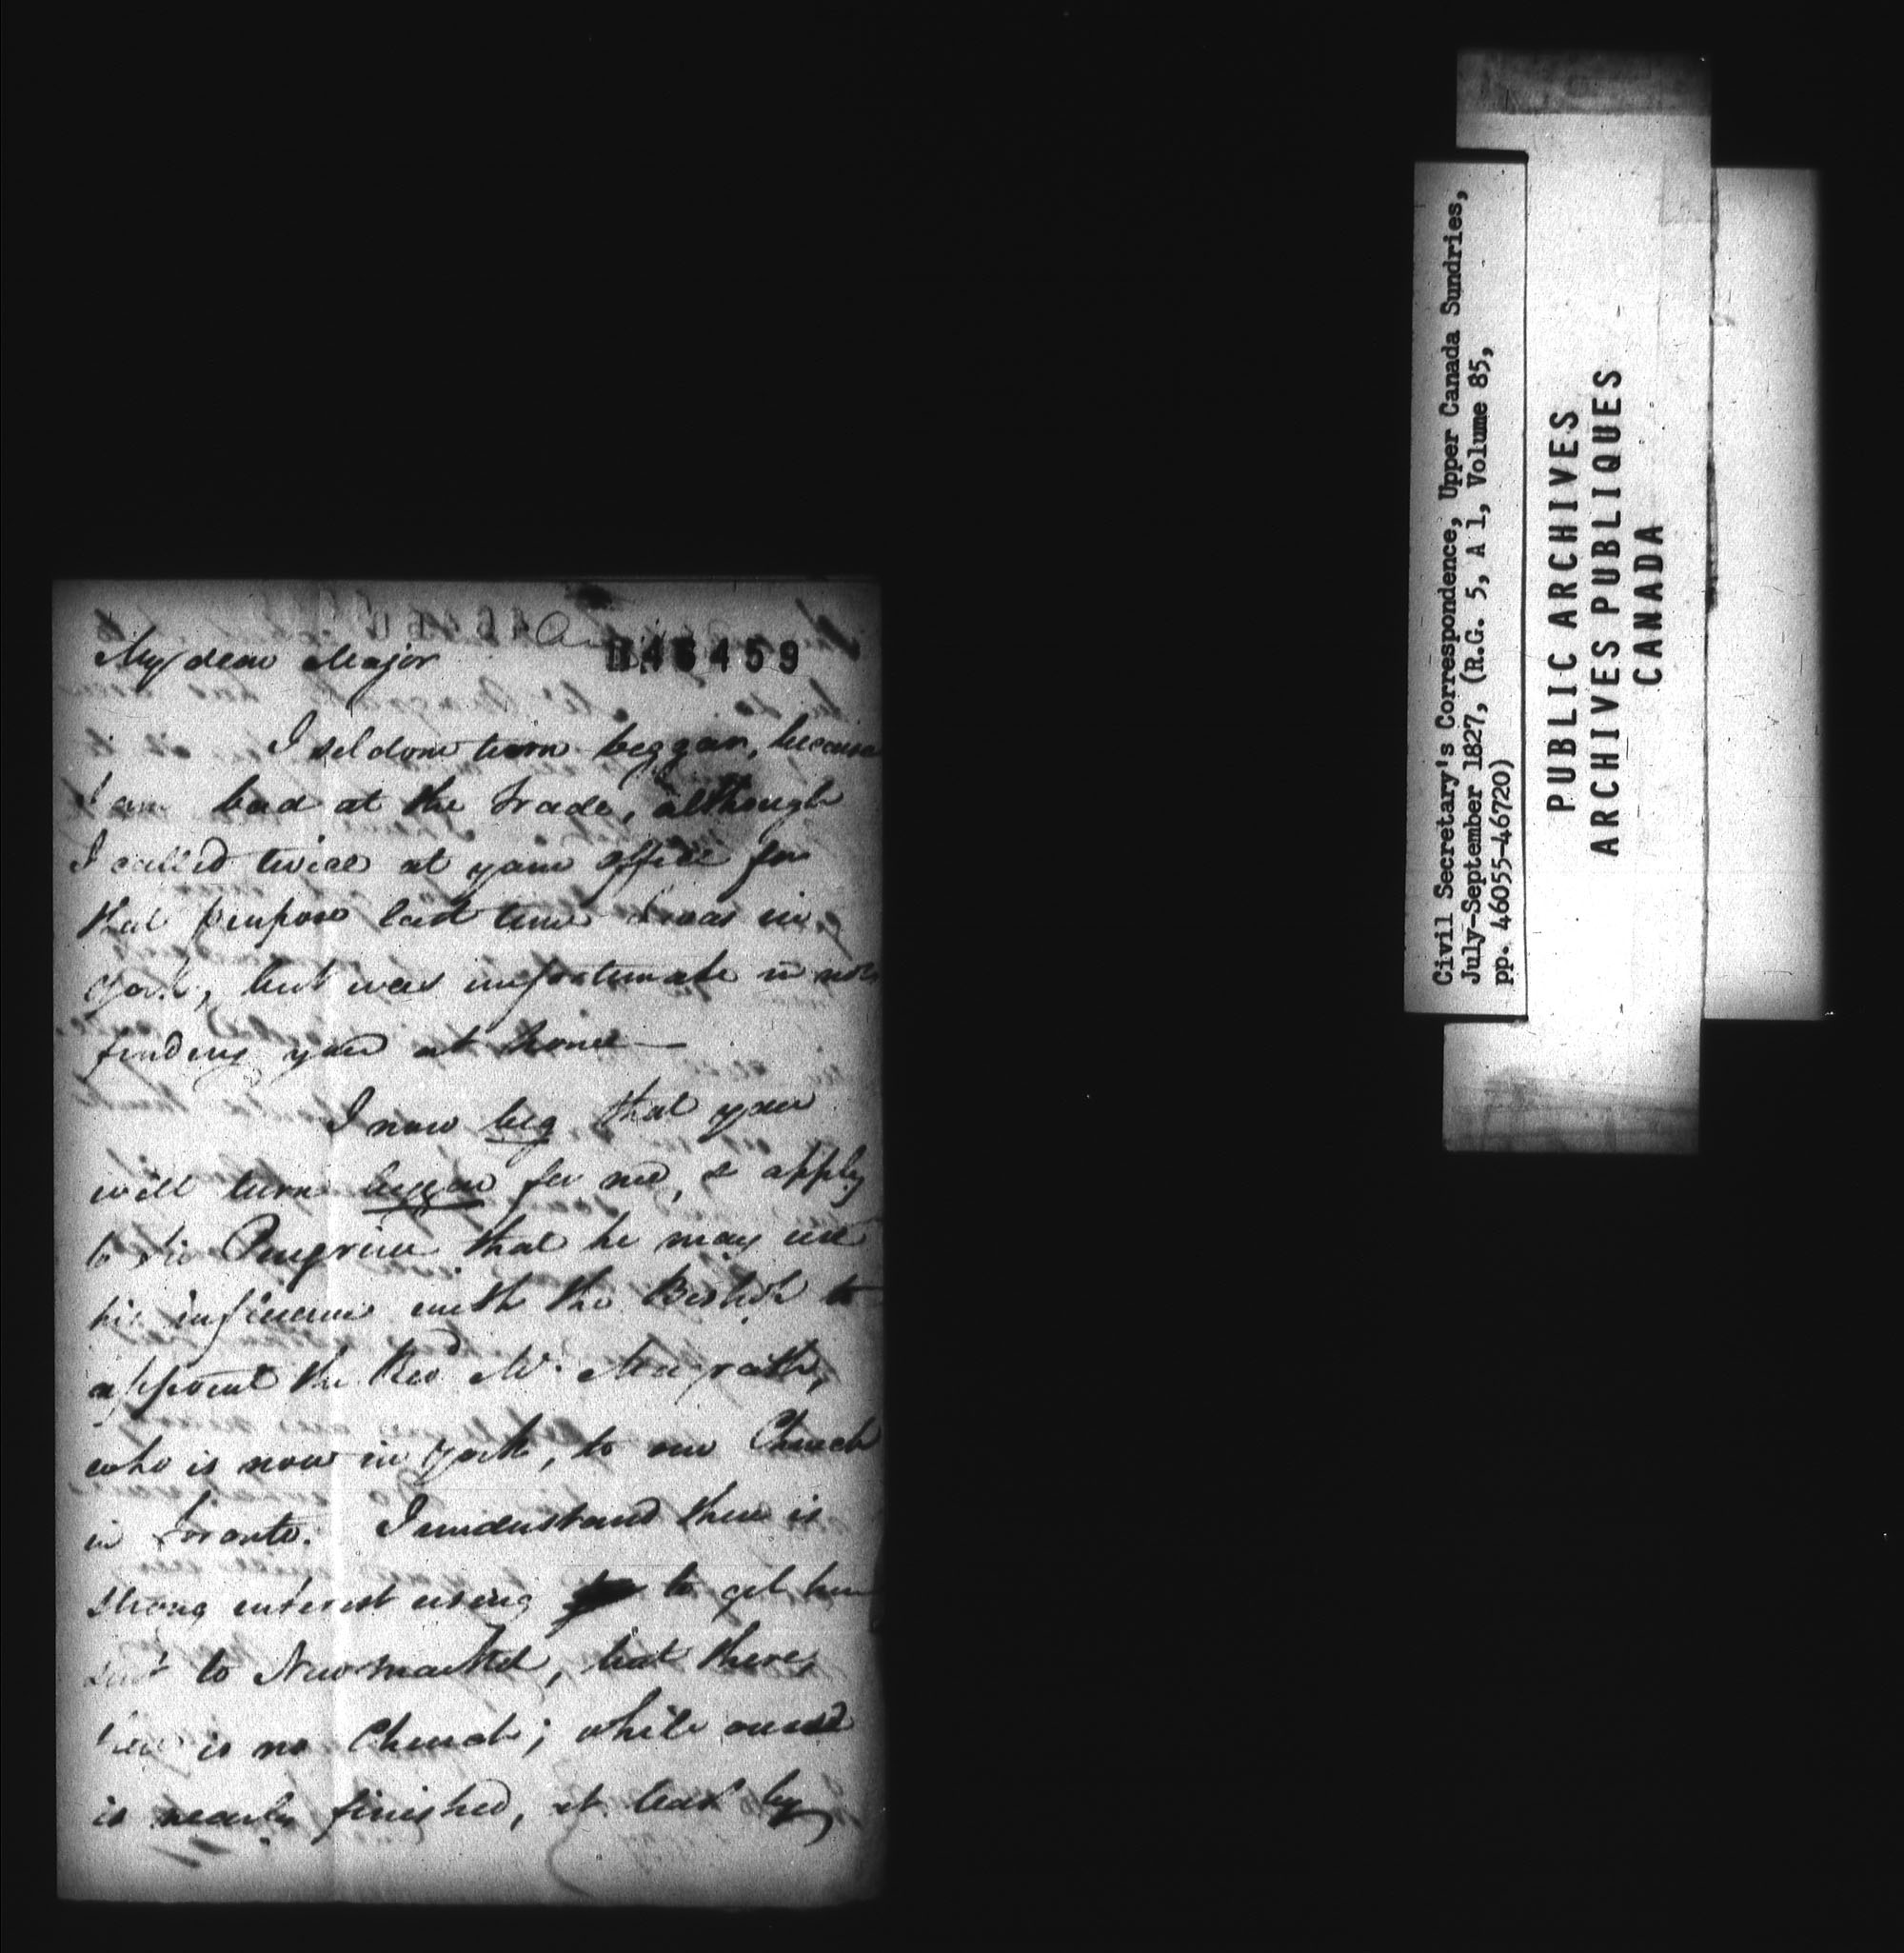 My dear Major
046459
I seldom turn beggar, because
I am bad at the trade, although
I called twice at your office for
that purpose last time I was in
York, but was unfortunate in not
finding you at home —
I now beg that you
will turn beggar for me, & apply
to Sir Peregrine that he may use
his influence with the Bishop to
appoint the Revd Mr. Magrath,
who is now in York, to our Church
in Toronto. I understand there is
strong interest using to get him
sent to Newmarket, but there,
there is no Church; while ours
is nearly finished, at least by
Civil Secretary's Correspondence, Upper Canada Sundries,
July-September 1827, (R.G. 5, A 1, Volume 85,
pp. 46055-46720)
PUBLIC ARCHIVES
ARCHIVES PUBLIQUES
CANADA